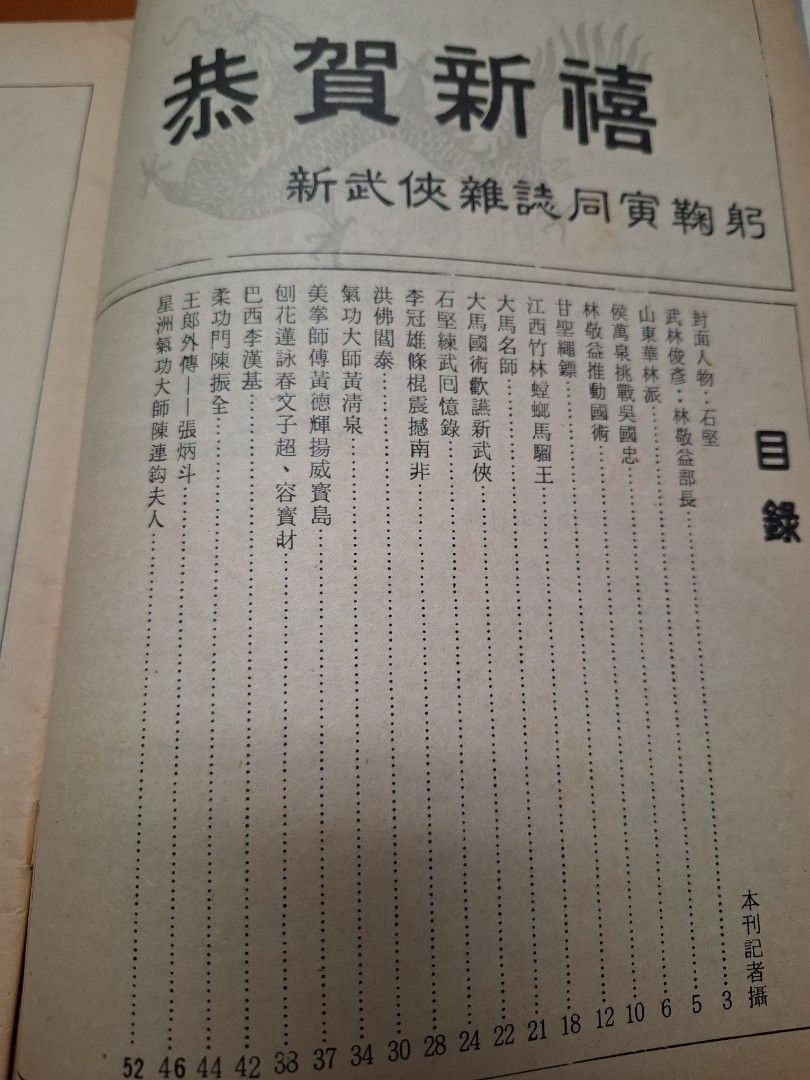 恭賀新禧
新武俠雜誌同寅鞠躬
目錄
封面人物：石堅 本刊記者攝
武林俊彥：林敬益部長……3
山東華林派……5
侯萬泉挑戰吳國忠……6
林敬益推動國術……10
甘聖繩鏢……12
江西竹林螳螂馬騮王……18
大馬名師……21
大馬國術歡讌新武俠……22
石堅練武回憶錄……24
李冠雄條棍震撼南非……28
洪佛閻泰……30
氣功大師黃清泉……34
美拳師傅黃德輝揚威寶島……37
刨花蓮詠春文子超、容寶財……38
巴西李漢基……42
柔功門陳振全……44
王郎外傳——張炳斗……46
星洲氣功大師陳連鈎夫人……52